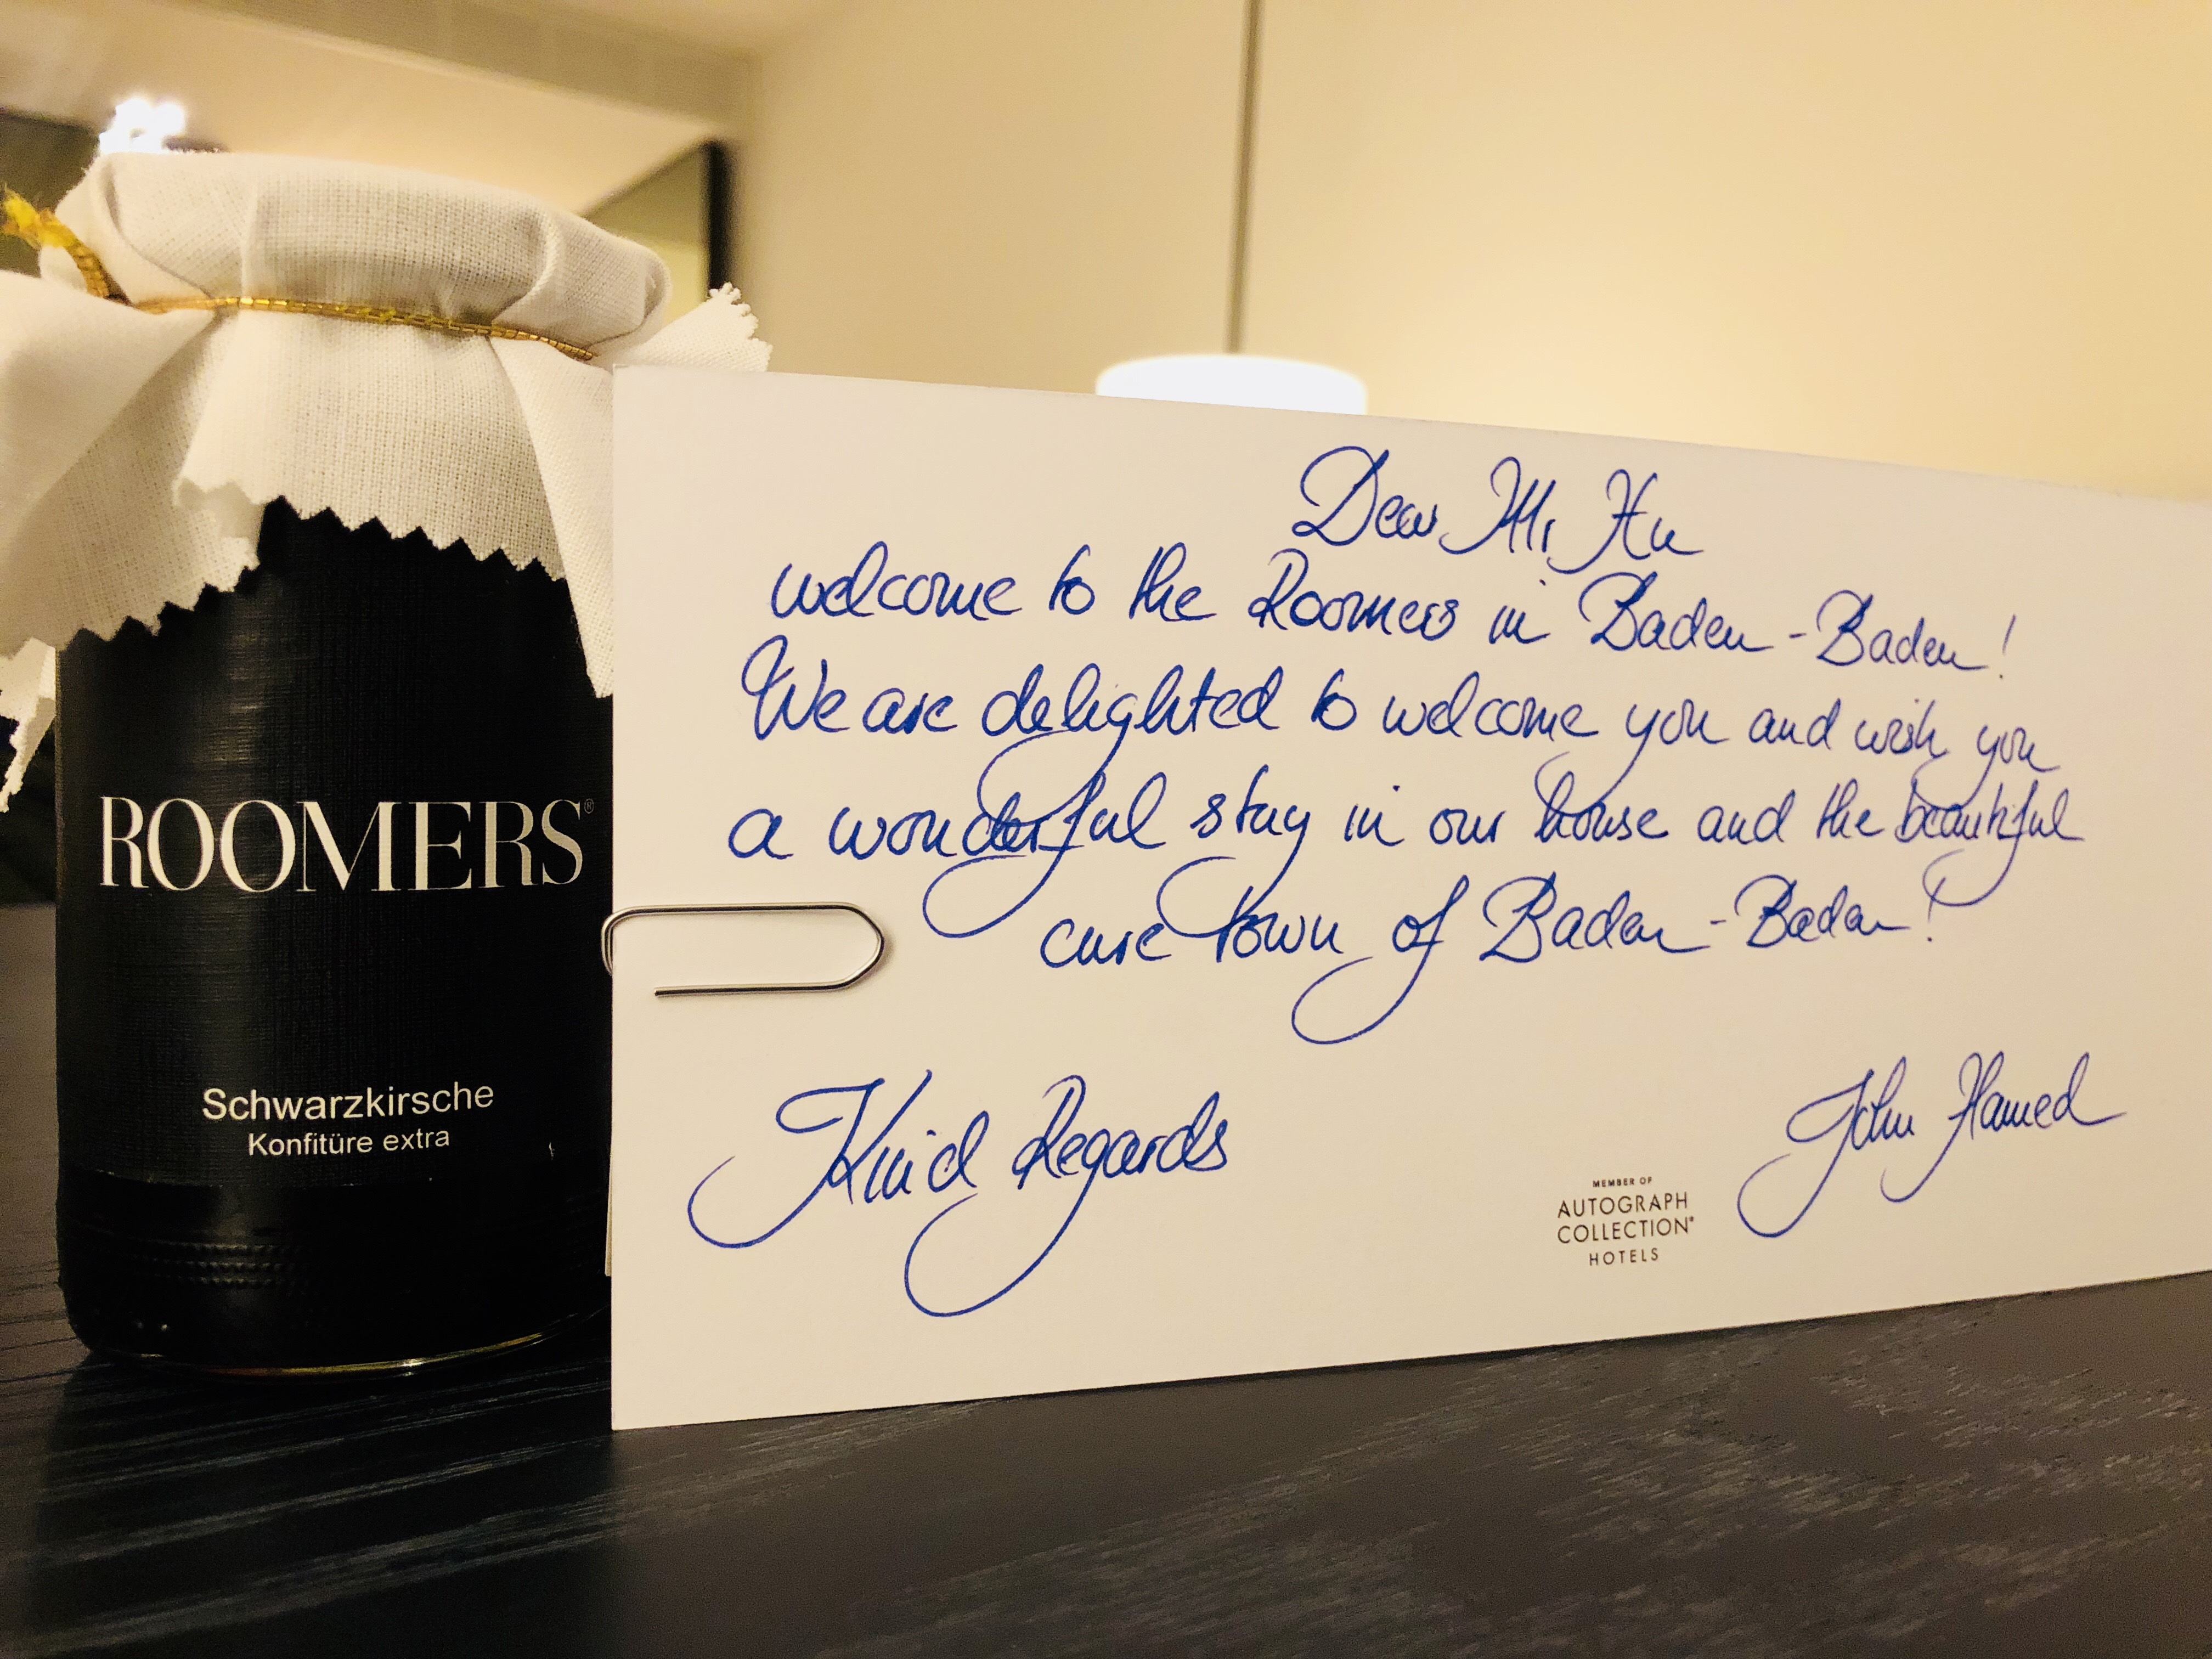 ROOMERS®
Schwarzkirsche
Konfitüre extra
Dear Mr. Hu
welcome to the Roomers in Baden-Baden!
We are delighted to welcome you and wish you
a wonderful stay in our house and the beautiful
cure town of Baden-Baden!
Kind Regards
John Hamed
MEMBER OF
AUTOGRAPH
COLLECTION®
HOTELS